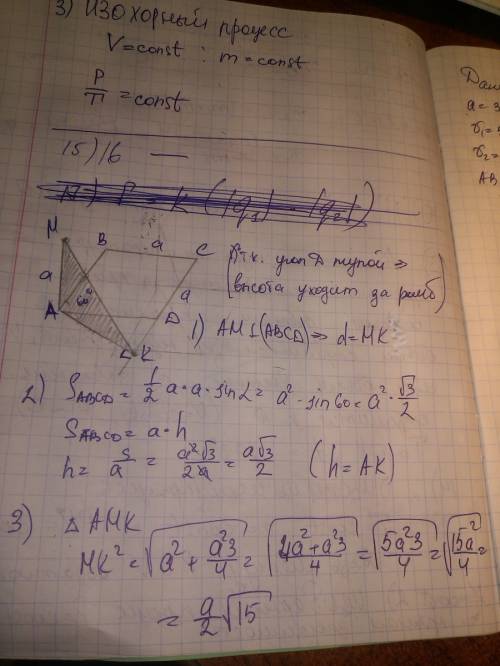 3) Изохорный процесс
V=const : m=const
P/T = const
15) 16 —
M
B
a
C
a
a
60°
A
D
K
т.к. угол D тупой ⇒
высота уходит за ромб
1) AM⊥(ABCD) ⇒ d=MK
2) SABCD = 1/2 a·a·sin L = a² · sin60 = a² · √3/2
SABCD = a·h
h = S/a = a²√3/2a = a√3/2 (h=AK)
3) △ AMK
MK² = √(a² + a²3/4) = √(4a²+a²3/4) = √(5a²3/4) = √(15a²/4) =
= a/2 √15
Дан
a = 3
r₁ =
r₂ =
AB